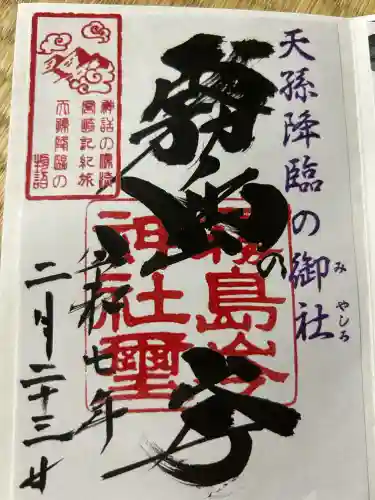 天孫降臨の御社
みやしろ
霧島の岑
霧島岑
神社璽
神話の源流
宮崎記紀旅
天孫降臨の
物語
令和七年
二月二十三日